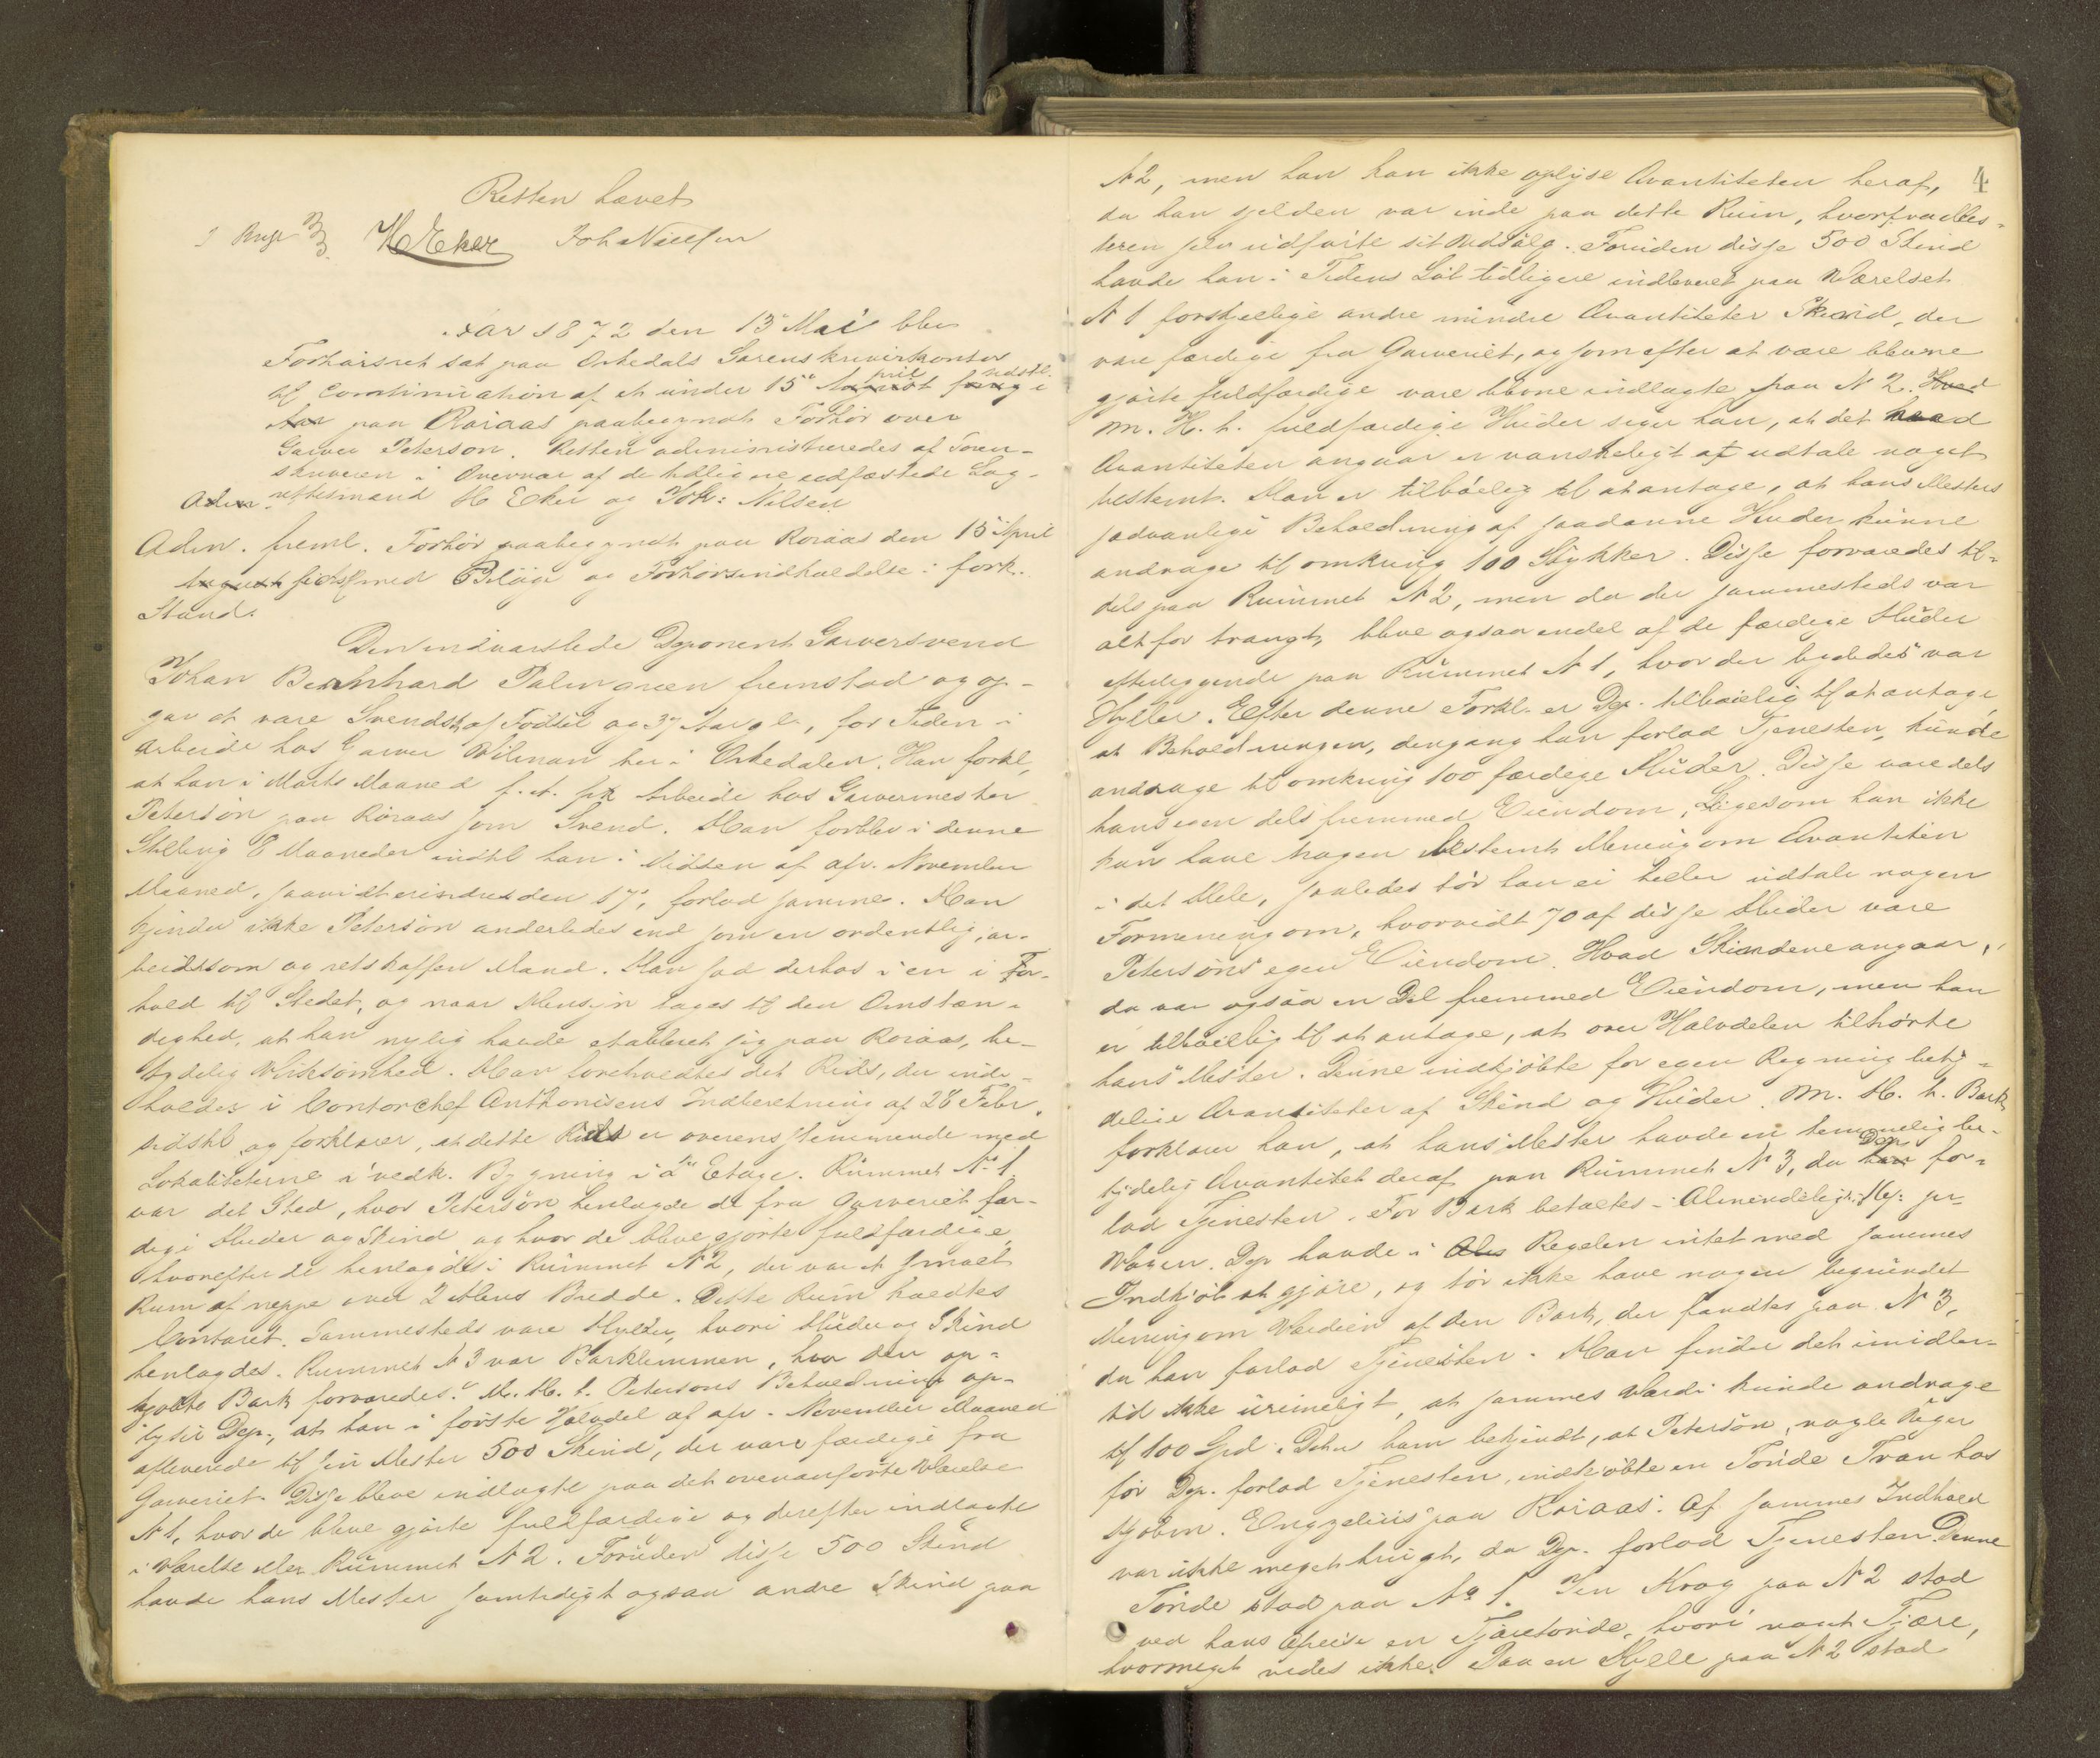 Retten hævet
H Eker Joh Nielsen
Aar 1872 den 13 Mai blev
Forhørsret sat paa Orkedals Sorenskriverkontor
til Continuation af et under 15de April sidstl.
paa Røraas paabegyndt Forhør over
Garver Peterson. Retten administreredes af Soren-
skriveren i Overvær af de tidligere edfæstede Lag-
rettesmænd H Eker og Joh: Nilsen
Adm. freml. Forhør paabegyndt paa Røraas den 15 April
sidstl. med Bilage og Forhørsindkaldelse i fork.
Stand.
Den indvarslede Deponent Garversvend
Johan Bernhard Palmgreen fremstod og op-
gav at være Svensk af Fødsel og 37 Aar gl., for Tiden i
Arbeide hos Garver Wilman her i Orkedalen. Han forkl.,
at han i Marts Maaned f. A. fik Arbeide hos Garvermester
Peterson paa Røraas som Svend. Han forblev i denne
Stilling 8 Maaneder indtil han i Midten af afv. November
Maaned, saavidt erindres den 17, forlod samme. Han
kjender ikke Peterson anderledes end som en ordentlig, ar-
beidsom og retskaffen Mand. Han sad derhos i en i For-
hold til Stedet, og naar Hensyn tages til den Omstæn-
dighed, at han nylig havde etableret sig paa Røraas, be-
tydelig Virksomhed. Han foreholdtes det Rids, der inde-
holdes i Contorchef Anthonisens Indberetning af 28 Febr.
sidstl. og forklarer, at dette Rids er overensstemmende med
Lokaliteterne i vedk. Bygning i 2den Etage. Rummet No 1
var det Sted, hvor Peterson henlagde de fra Garveriet fær-
dige Huder og Skind og hvor de bleve gjorte fuldfærdige,
hvorefter de henlagdes i Rummet N 2, der var et smalt
Rum af neppe over 2 Alens Bredde. Dette Rum kaldtes
Contoret. Sammesteds vare Hylder, hvori Huder og Skind
henlagdes. Rummet N 3 var Barklemmen, hvor den op-
kjøbte Bark forvaredes. M. H. t. Petersons Beholdning op-
lyser Dep., at han i første Halvdel af afv. November Maaned
afleverede til sin Mester 500 Skind, der vare færdige fra
Garveriet. Disse bleve indlagte paa det ovenanførte Værelse
N 1, hvor de bleve gjorte fuldfærdige og derefter indlagte
i Værelse eller Rummet N 2. Foruden disse 500 Skind
havde hans Mester samtidigt ogsaa andre Skind paa
4
N 2, men han kan ikke oplyse Qvantiteten heraf,
da han sjelden var inde paa dette Rum, hvorfra Mes-
teren selv udførte sit Udsalg. Foruden disse 500 Skind
havde han i Tidens Løb tidligere indleveret paa Værelset
N 1 forskjellige andre mindre Qvantiteter Skind, der
vare færdige fra Garveriet, og som efter at være blevne
gjorte fuldfærdige vare blevne indlagte paa N 2.
M. H. t. fuldfærdige Huder siger han, at det hvad
Qvantiteten angaar er vanskeligt at udtale noget
bestemt. Han er tilbøielig til at antage, at hans Mesters
sædvanlige Beholdning af saadanne Huder kunne
andrage til omkring 100 Stykker. Disse forvaredes til-
dels paa Rummet N 2, men da der sammesteds var
alt for trangt, bleve ogsaa endel af de færdige Huder
efterliggende paa Rummet N 1, hvor der ligeledes var
Hylder. Efter denne Forkl. er Dep. tilbøielig til at antage,
at Beholdningen, dengang han forlod Tjenesten, kunde
andrage til omkring 100 færdige Huder. Disse vare dels
hans egen dels fremmed Eiendom. Ligesom han ikke
kan have nogen bestemt Mening om Qvantiteten
i det Hele, saaledes tør han ei heller udtale nogen
Formening om, hvorvidt 70 af disse Huder vare
Petersons egen Eiendom. Hvad Skindene angaar,
da var ogsaa en Del fremmed Eiendom, men han
er tilbøielig til at antage, at over Halvdelen tilhørte
hans Mester. Denne indkjøbte for egen Regning bety-
delige Qvantiteter af Skind og Huder. M. H. t. Bark
forklarer han, at hans Mester havde en temmelig be-
tydelig Qvantitet deraf paa Rummet N 3, da Dep. for-
lod Tjenesten. For Bark betaltes i Almindelighed pr
Vogen. Dep. havde i Regelen intet med sammes
Indkjøb at gjøre, og tør ikke have nogen begrundet
Mening om Værdien af den Bark, der fandtes paa N 3,
da han forlod Tjenesten. Han finder det imidler-
tid ikke urimeligt, at sammes Værdi kunde andrage
til 100 Spd. Det er ham bekjendt, at Peterson, nogle Uger
før Dep. forlod Tjenesten, indkjøbte en Tønde Tran hos
Kjøbm. Engzelius paa Røraas. Af sammes Indhold
var ikke meget brugt, da Dep. forlod Tjenesten. Denne
Tønde stod paa No 1. I en Krog paa N 2 stod
ved hans Afreise en Tjæretønde, hvori noget Tjære,
hvormeget vides ikke. Paa en Hylle paa N 2 stod